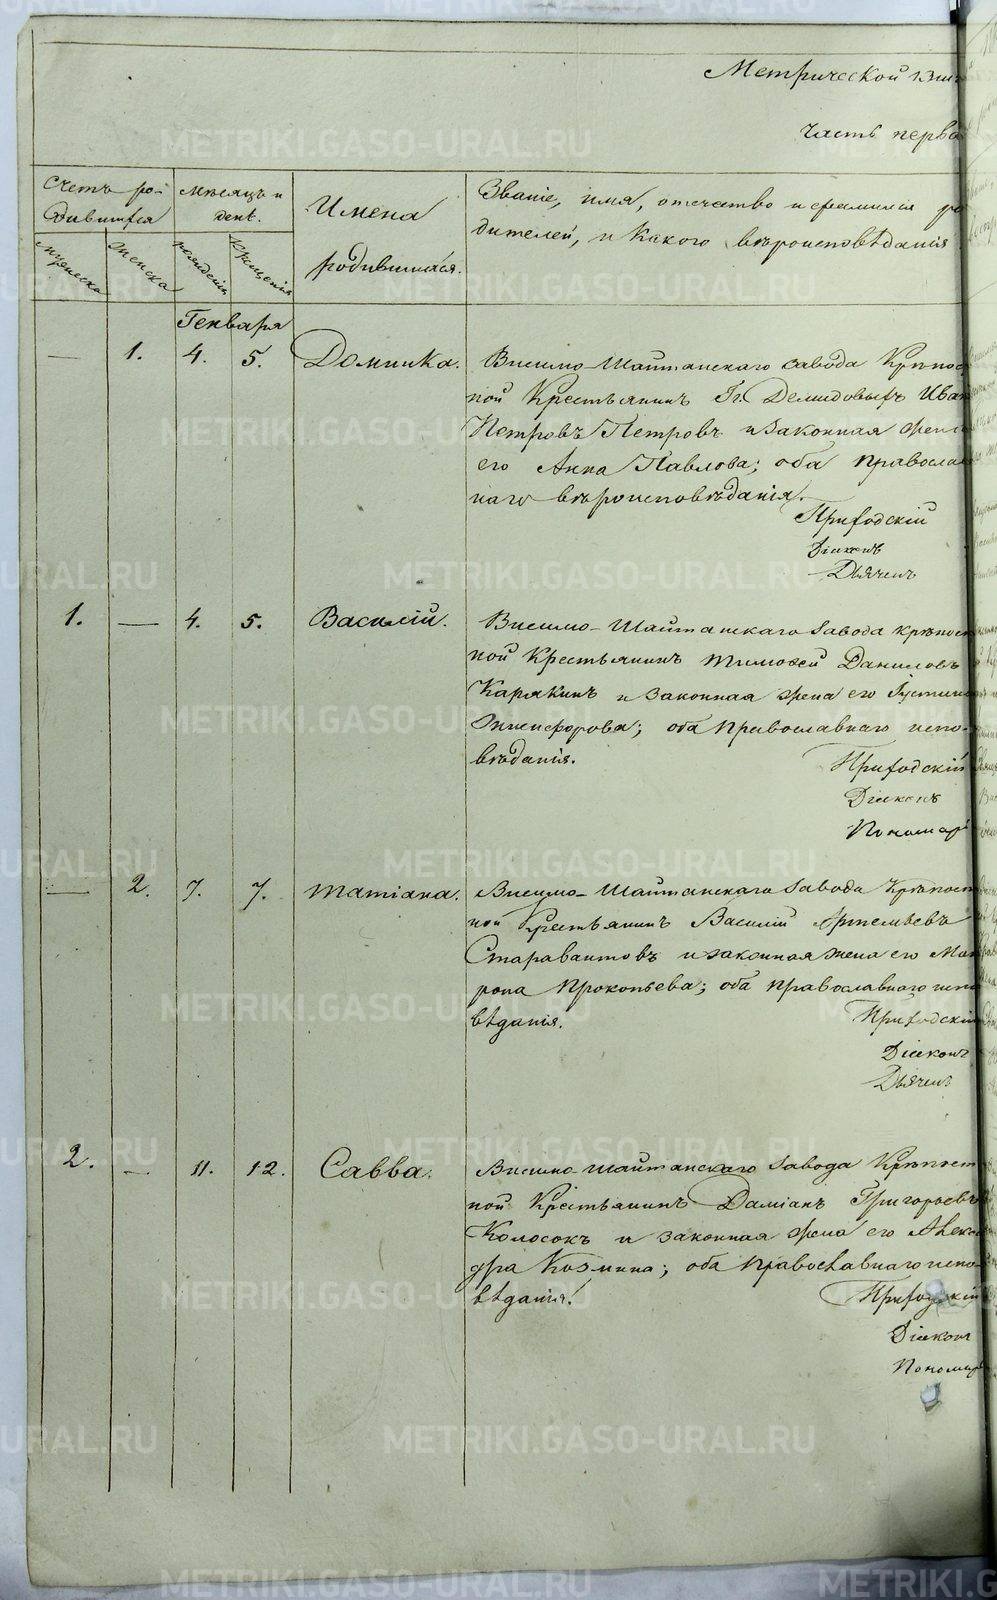 Метрической кни
часть перва
Счетъ ро-
дившихся
Мѣсяцъ и
день.
Имена
родившихся.
Званіе, имя, отчество и фамилія ро
дителей, и какого вѣроисповѣданія
мужеска
женска
рожденія
крещенія
Генваря
— 1. 4. 5. Домника.
Висимо-Шайтанскаго завода Крѣпос
ной Крестьянинъ Гг. Демидовыхъ Иван
Петровъ Петровъ и законная жена
его Анна Павлова; оба православ
наго вѣроисповѣданія.
Приходскій
Діаконъ
Дьячекъ
1. — 4. 5. Василій.
Висимо-Шайтанскаго завода крѣпост
ной Крестьянинъ Тимофей Даниловъ
Карякинъ и законная жена его Іустин
Никифорова; оба Православнаго испо-
вѣданія.
Приходскій
Діаконъ
Пономарь
— 2. 7. 7. Татіана.
Висимо-Шайтанскаго завода Крѣпост
ной Крестьянинъ Василій Артемьевъ
и законная жена его Мат
рона Прокопьева; оба православнаго испо
вѣданія.
Приходскій
Діаконъ
Дьячекъ
2. — 11. 12. Савва.
Висимо-Шайтанскаго завода Крѣпост
ной Крестьянинъ Даміанъ Григорьевъ
Колосокъ и законная жена его Алекса
дра Козмина; оба Православнаго испо-
вѣданія.
Приходскій
Діаконъ
Пономарь
METRIKI.GASO-URAL.RU